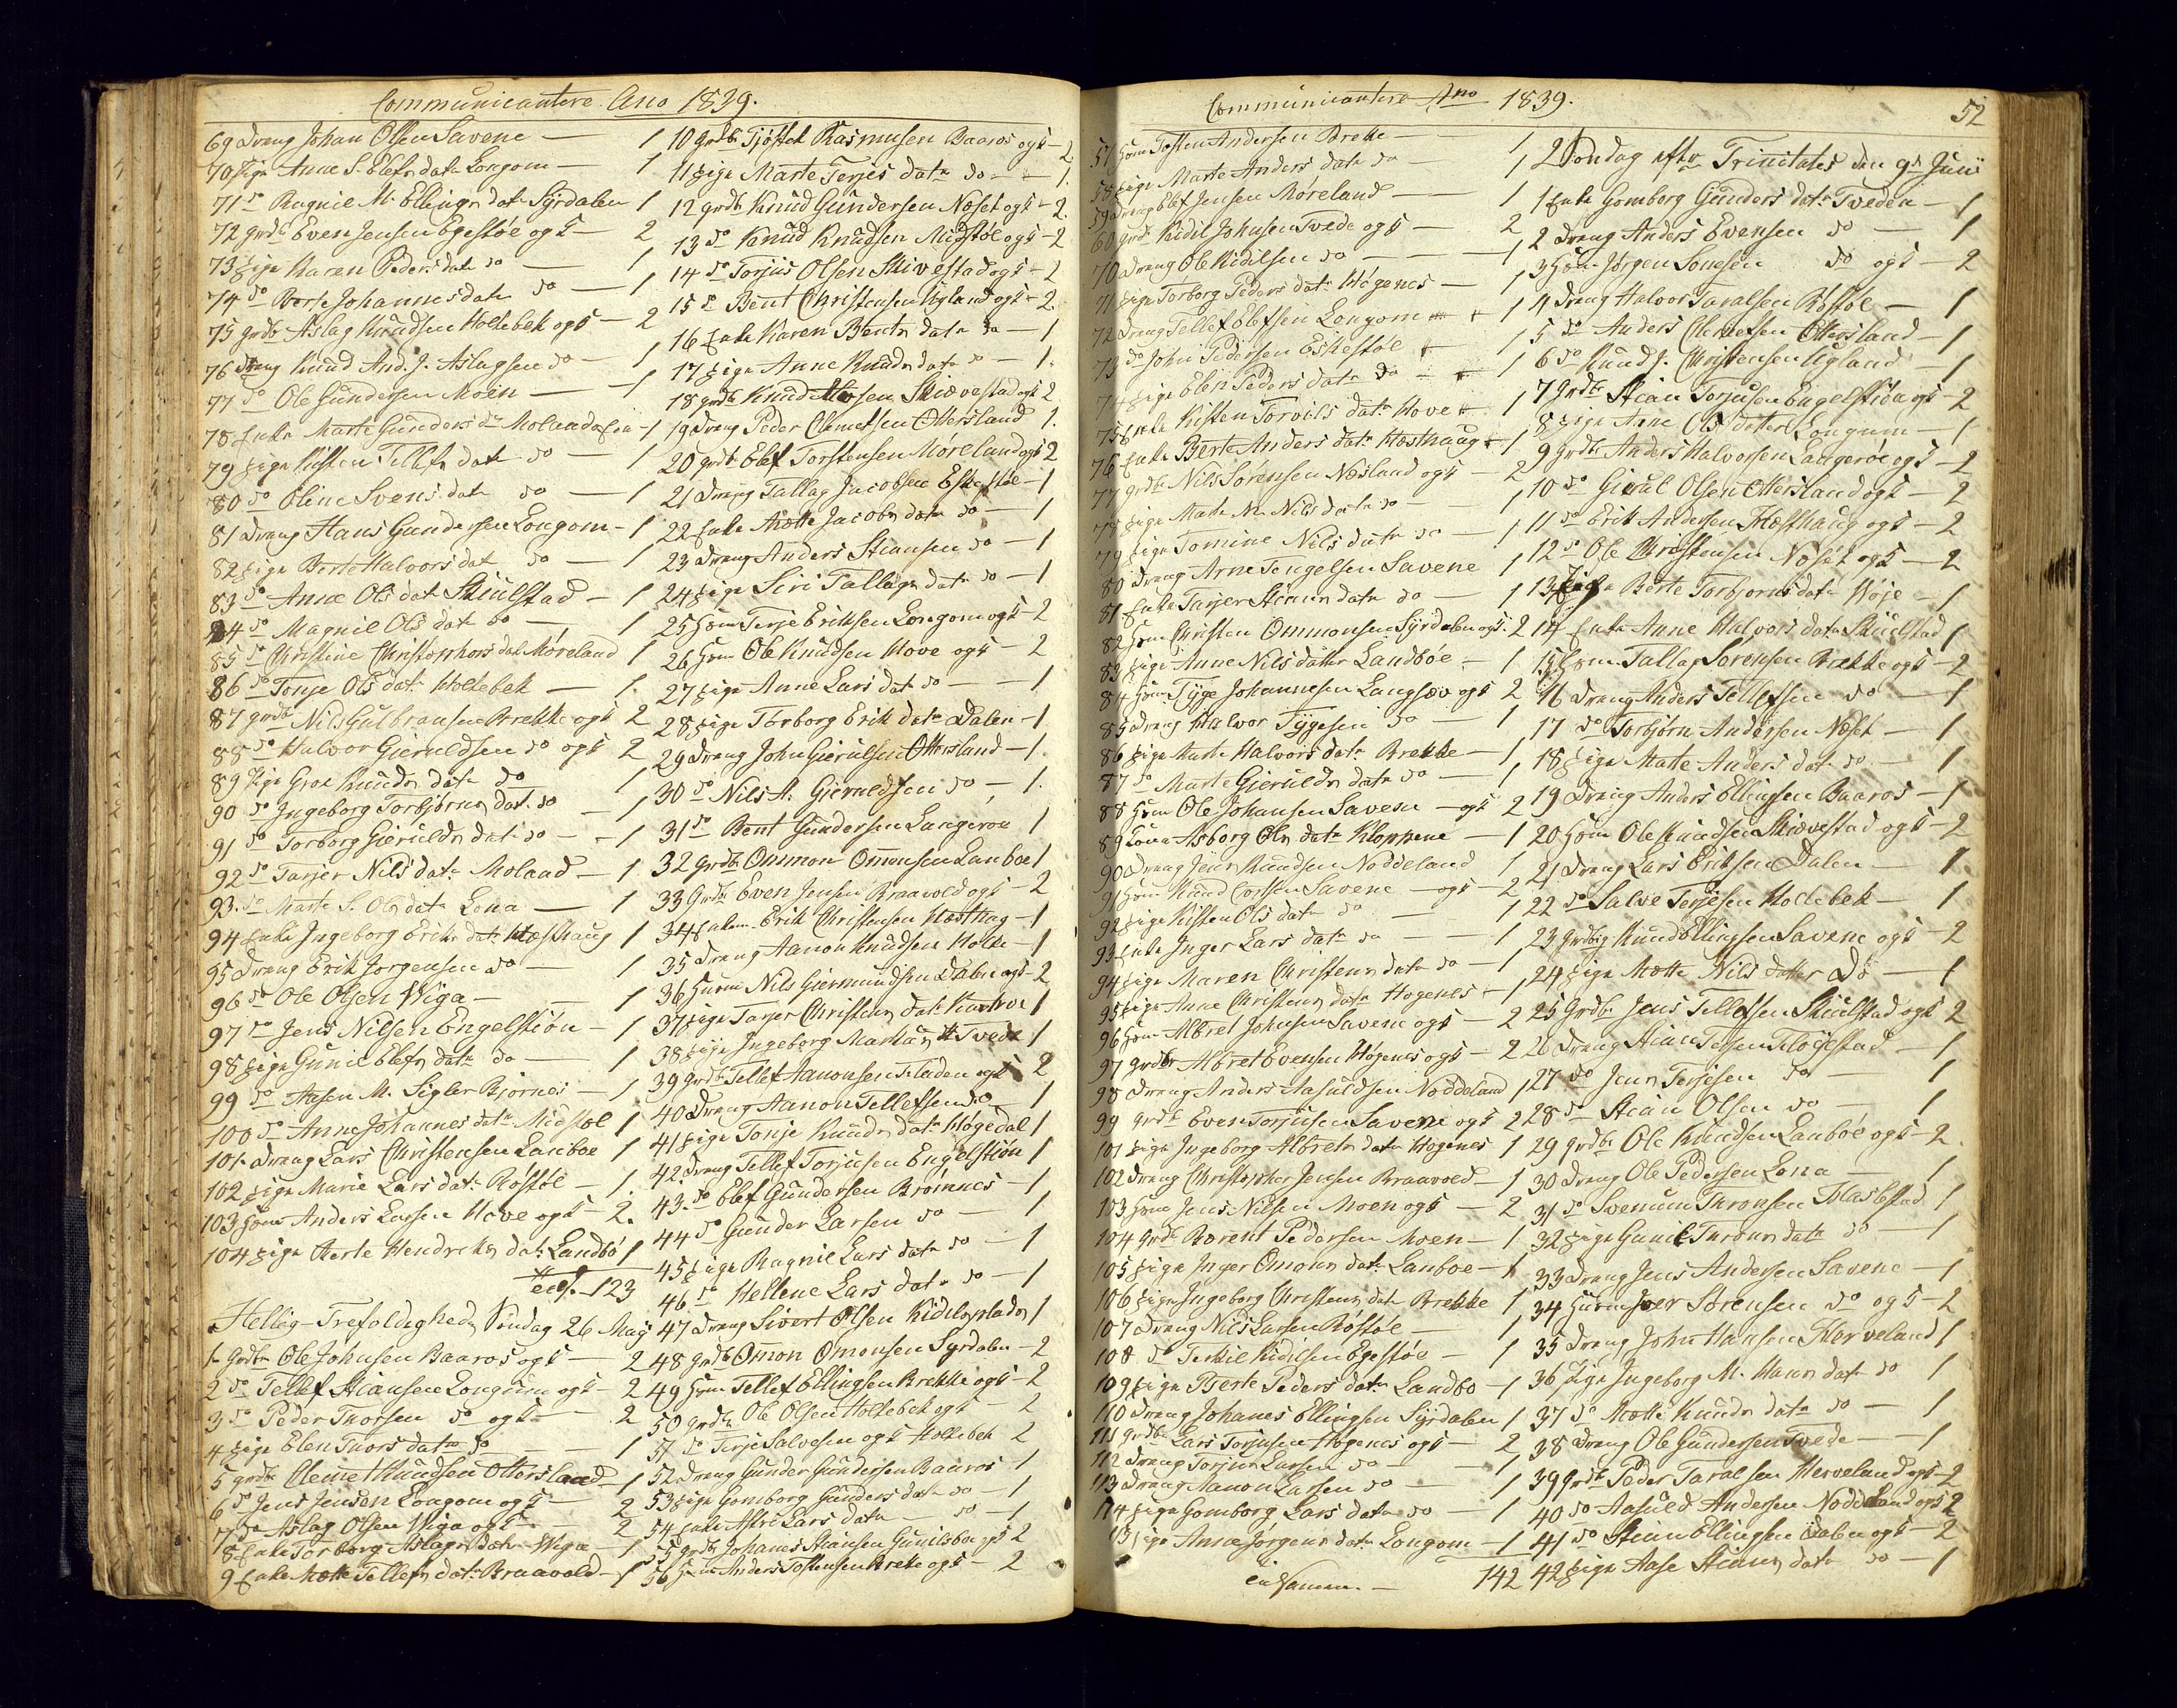 Communicantere Ano 1839.
69 Dreng Johan Olsen Savene — 1
70 Pige Anne S. Elefs datr Longom — 1
71 do Ragnil M. Ellings datr Syrdalen 1
72 grdbr Even Jensen Egestøl og k — 2
73 Pige Karen Peders datr do — 1
74 do Berte Johannes datr do — 1
75 grdbr Aslag Knudsen Holtebek og k — 2
76 Dreng Knud And. J. Aslagsen do — 1
77 do Ole Gundersen Moen — 1
78 Enke Marte Gunders dr Molaad — 1
79 Pige Kisten Tellefs datr do — 1
80 do Oline Svens datr do — 1
81 Dreng Hans Gundersen Longom — 1
82 Pige Berte Halvors dat do — 1
83 do Anne Ols dat Skiulstad — 1
84 do Magnil Ols dat do — 1
85 do Christine Christophers dat Møreland 1
86 do Tonje Ols datr Holtebek — 1.
87 grdbr Nils Gulbransen Brekke og k 2
88 do Halvor Gieruldsen do og k 2
89 Pige Groe Knuds datr do 1
90 do Ingeborg Torbjørns dat. do — 1
91 do Torborg Gierulds dat do — 1
92 do Tarjer Nils datr Molaad — 1
93. do Marte S. Ols datr Lona — 1
94 Enke Ingeborg Eriks datr Hæsthaug 1
95 Dreng Erik Jorgensen do — 1
96 do Ole Olsen Wiga — 1
97 do Jens Nilsen Engelstiøn — 1
98 Pige Gunil Elefs datr do — 1
99 do Aasen M. Sigler Bjørnes — 1
100 do Anne Johannes datr Midstøl 1
101 Dreng Lars Christensen Lanboe 1
102 Pige Marie Lars datr Røstøl — 1.
103 Huusm Anders Larsen Hove og k — 2.
104 Pige Berte Hendreks datr Landbø 1
123
Hellig-Trefoldigheds Søndag 26 Maij
1 Grdbr Ole Johnsen Baaros og k — 2
2 do Tellef Stiansen Longum og k — 2
3 do Peder Thorsen do og k — 2
4 Pige Elen Thors datr do — 1
5 grdbr Clemet Knudsen Ottersland — 1
6 do Jens Jensen Longom og k — 2
7 do Aslag Olsen Wiga og k — 2
8 Enke Torborg Aslags Datr Wiga — 1
9 Enke Mette Tellefs datr Braavold — 1
10 grdbr Tjøstel Rasmusen Baaros og k — 2
11 Pige Marte Terjes datr do — 1.
12 grdbr Knud Gundersen Næset og k — 2.
13 do Knud Knudsen Midstøl og k — 2
14 do Torjus Olsen Skivestad og k — 2
15 do Bent Christensen Ugland og k — 2.
16 Enke Karen Bents datr do — 1
17 Pige Anne Knuds datr do — 1.
18 grdbr Knud Alvsen Skiævestad og k 2
19 Dreng Peder Clemetsen Ottersland 1.
20 grdbr Elef Torstensen Møreland og k 2
21 Dreng Tallag Jacobsen Eskestøl — 1
22 Enke Mette Jacobs datr do — 1
23 Dreng Anders Stiansen do — 1
24 Pige Siri Tallags datr do — 1
25 Huusm Terje Eriksen Longom og k — 2
26 Husm Ole Knudsen Hove og k — 2
27 Pige Anne Lars dat do — 1
28 Pige Torborg Erik datr Dalen — 1
29 Dreng John Gierulsen Ottersland — 1.
30 do Nils A. Gieruldsen do — 1.
31 do Bent Gundersen Langerøe 1
32 grdbr Ommon Omonsen Lanboe 1
33 Grdbr Even Jensen Braavold og k — 2
34 Enkem. Erik Christensen Hæsthag — 1
35 Dreng Aanon Knudsen Holte — 1
36 Huusm Nils Giermundsen Dalen og k — 2
37 Pige Tarjer Christens datr 1
38 Pige Ingeborg Mathias d Tvede 1
39 grdbr Tellef Aanonsen Fladen og k 2
40 Dreng Aanon Tellefsen do 1
41 Pige Tonje Knuds datr Høgedal 1
42. Dreng Tellef Torjusen Engelstiøn 1
43. do Elef Gundersen Brømnes — 1
44 do Gunder Larsen do — 1
45 Pige Ragnil Lars datr do — 1
46 do Hellene Lars datr do — 1
47 Dreng Sivert Olsen Kidelsplads 1
48 grdbr Omon Omonsen Syrdalen — 2
49 Husm Tellef Ellingsen Brekke og k — 2
50 grdbr Ole Olsen Holtebek og k — 2
51 do Terje Salvesen og k Holtebek 2
52 Dreng Gunder Gundersen Baaros 1
53 Pige Gomborg Gunders dat do — 1
54 Enke Astri Lars datr — do — 1
55 grdbr Johanes Stiansen Gunilsbo og k 2
56 Husm Anders Tostensen Breke og k — 2
Communicantere Ano 1839.
52
57 Huusm Tosten Andersen Brekke — 1
58 Pige Marte Anders datr do — 1
59 Dreng Elef Jensen Møreland — 1
60 grdbr Kidil Johnsen Tvede og k — 2
70 Dreng Ole Kidilsen do — 1
71 Pige Torborg Peders datr Høgenes — 1
72 Dreng Tellef Elefsen Longom — 1
73 do John Pedersen Eskestøl — 1
74 Pige Elen Peders datr do — 1
75 Enke Kisten Torvils datr Hove — 1
76 Enke Berte Anders datr Hæsthaug — 1
77 grdbr Nils Sørensen Næsland og k — 2
78 Pige Marte M. Nils datr do — 1
79 Pige Tomine Nils datr do — 1
80 Dreng Arne Tengelsen Savene 1
81 Enke Tarjer Stians datr do — 1
82 Husm Christen Ommonsen Syrdalen og k. 2
83 Pige Anne Nils datter Landbøe — 1
84 Husm Tyge Johannesen Langsæv og k 2
85 Dreng Halvor Tygesen do — 1
86 Pige Marte Halvors datr Brekke — 1
87 do Marte Gierulds datr do — 1
88 Husm Ole Johansen Savene — og k 2
89 Kona Asborg Ols datr Kloppene — 1
90 Dreng Jens Knudsen Noddeland 1
91 Husm Knud Larsen Savene — og k — 2
92 Pige Kisten Ols datr do — 1
93 Enke Inger Lars datr do — 1
94 Pige Maren Christens datr do — 1
95 Pige Anne Christens datr Hogenes — 1
96 Husm Albret Johnsen Savene og k — 2
97 grdbr Albret Evensen Høgenes og k — 2
98 Dreng Anders Aasuldsen Noddeland 1
99 grdbr Even Torjusen Savene og k 2
101 Pige Ingeborg Albrets datr Hogenes 1
102 Dreng Christopher Jensen Braavold — 1
103 Husm Jens Nilsen Moen og k — 2
104 Grdbr Berent Pedersen Moen — 1
105 Pige Inger Omons datr Lanboe — 1
106 Pige Ingeborg Christens datr Brekke 1
107 Dreng Nils Larsen Røstøl — 1
108 do Terkil Kidilsen Egestøl — 1
109 Pige Berte Peders datr Landbo — 1
110 Dreng Johanes Ellingsen Syrdalen 1
111 grdbr Lars Torjusen Høgenes og k — 2
112 Dreng Torjus Larsen do — 1
113 Dreng Aanon Larsen do — 1
114 Pige Gomborg Lars datr do — 1
115 Pige Anne Jorgens datr Longom — 1
142
2 Søndag efter Trinitates den 9de Junii
1 Enke Gomborg Gunders datr Tveden — 1
2 Dreng Anders Evensen do — 1
3 Husm Jørgen Sonesen do og k — 2
4 Dreng Halvor Taralsen Røstøl — 1
5 do Anders Clemetsen Ottersland — 1
6 do Knud J. Christensen Ugland — 1
7 Grdbr Stian Torjusen Engelstiøn og k — 2
8 Pige Anne Ols datter Longum — 1
9 grdbr Anders Halvorsen Langerøe og k — 2
10 do Gierul Olsen Ottersland og k — 2
11 do Erik Andersen Hæsthaug og k — 2
12 do Ole Christensen Nøset og k — 2
13 Pige Berte Torbjorns datr Høje — 1
14 Enke Anne Halvors datr Skiulstad 1
15 Husm Tallag Sørensen Brekke og k — 2
16 Dreng Anders Tellefsen do — 1
17 do Torbjørn Andersen Næset — 1
18 Pige Marte Anders dat do — 1
19 Dreng Anders Ellingsen Baaros — 1
20 Husm Ole Knudsen Skiævestad og k — 2
21 Dreng Lars Eriksen Dalen — 1.
22 do Salve Terjesen Holtebek — 1
23 Grdbrg Knud Ellingsen Savene og k — 2
24 Pige Mette Nils datter Do — 1
25 Grdbr Jens Tellefsen Skiulstad og k 2
26 Dreng Stian Jensen Fløgstad — 1
27 do Jens Terjesen do — 1
28 do Stian Olsen do — 1
29 grdbr Ole Knudsen Lanboe og k — 2
30 Dreng Ole Pedersen Lona — 1
31 do Svenum Thronsen Flasestad 1
32 Pige Gunil Throns datr do — 1
33 Dreng Jens Andersen Savene — 1
34 Huusm Iver Sorensen do og k — 2
35 Dreng John Hansen Herveland 1
36 Pige Ingeborg M. Hans datr do 1
37 do Mette Knuds datr do — 1
38 Dreng Ole Gundersen Tvede — 1
39 grdbr Peder Taralsen Herveland og k — 2
40 do Aasuld Andersen Noddeland og k 2
41 do Stian Ellingsen Dalen og k — 2
42 Pige Aase Stians datr do — 1